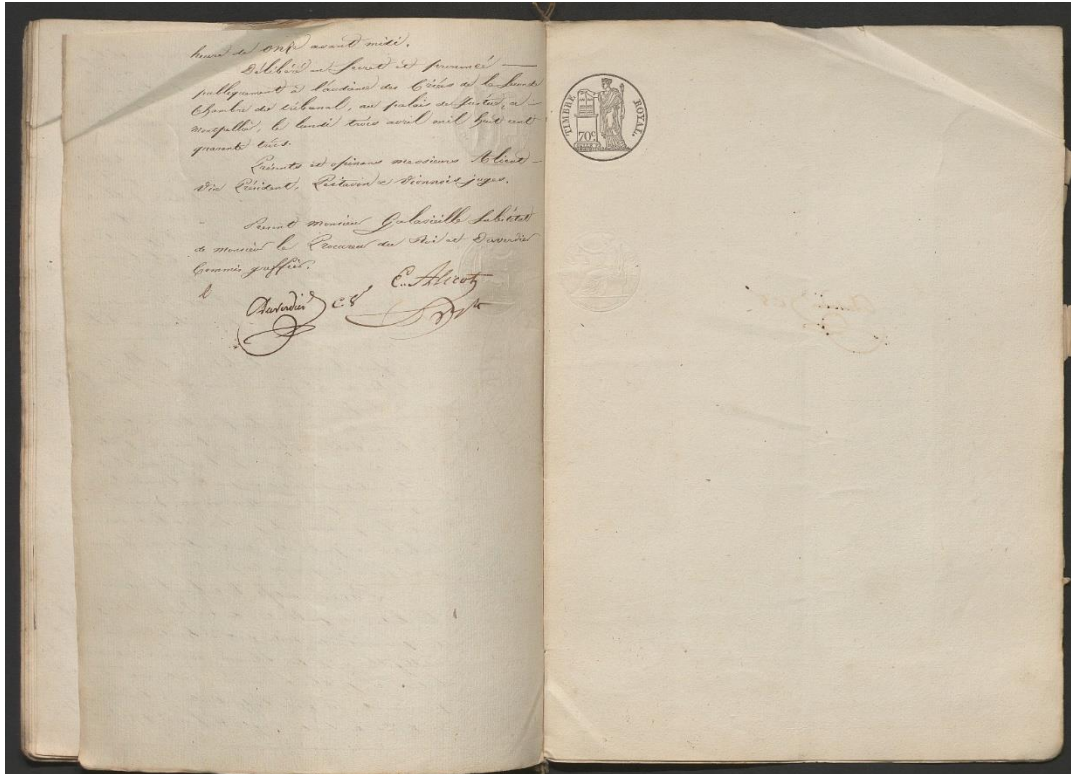 heure de onze avant midi.
Délibéré en secret et prononcé
publiquement à l'audience des Criées de la
Chambre du tribunal, au palais de Justice, a
Montpellier, le lundi trois avril mil huit cent
quarante trois.
Présents et opinans messieurs Alicot
Vice Président, et Viennois juges.
Présent monsieur Galavielle Substitut
de monsieur le Procureur du Roi et Duverdier
Commis greffier.
Duverdier C. g. E. Alicot
TIMBRE ROYAL.
70c.